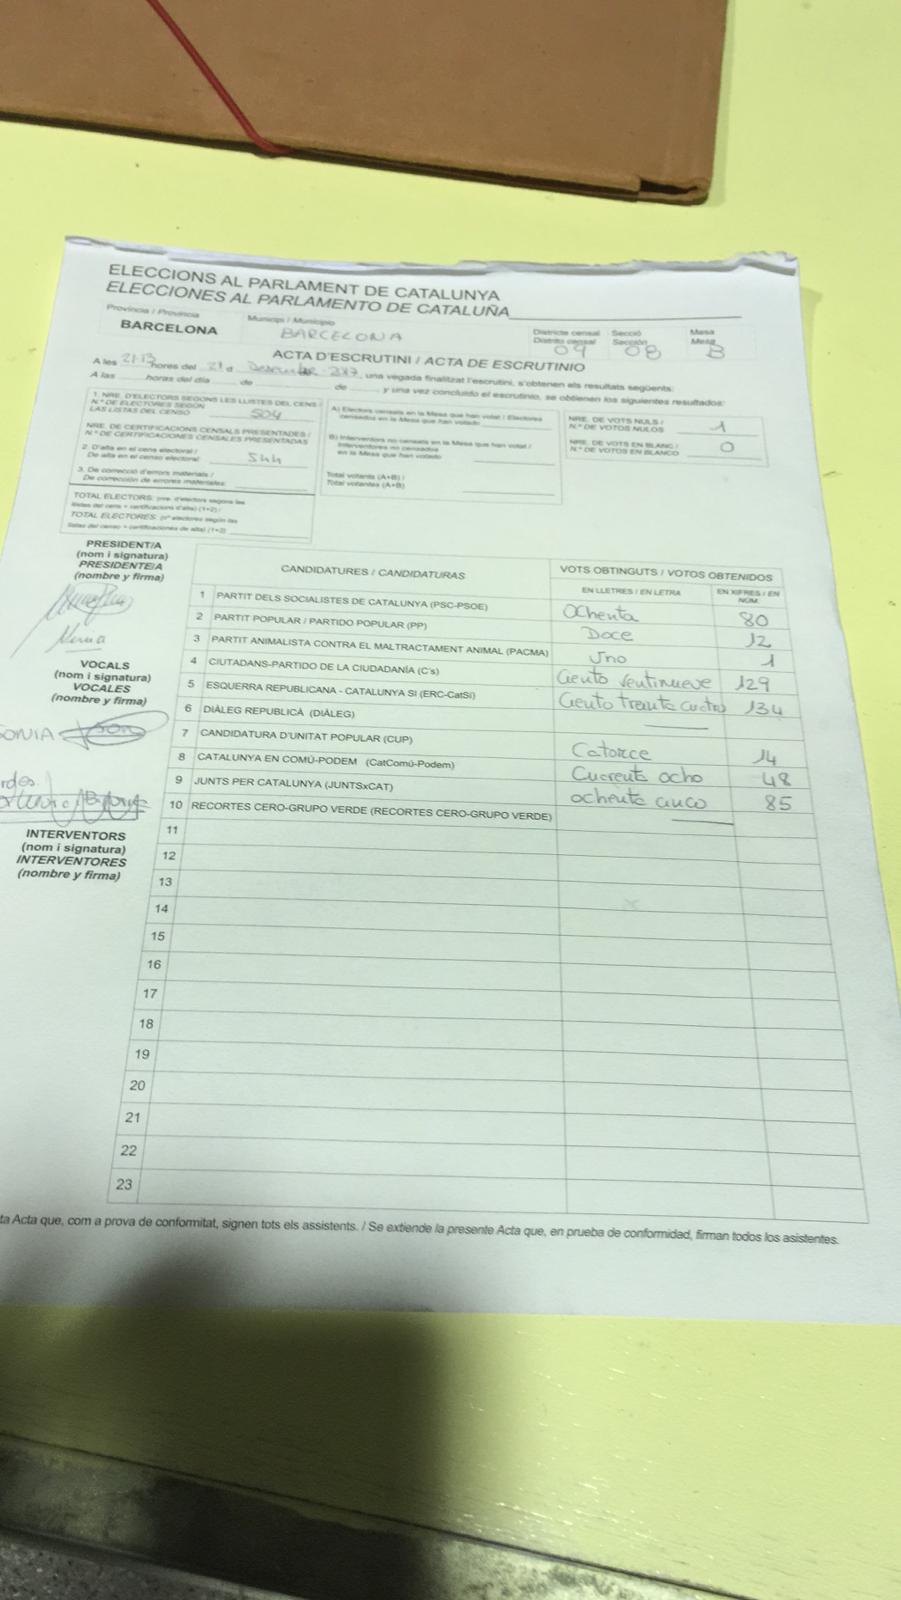 ELECCIONS AL PARLAMENT DE CATALUNYA
ELECCIONES AL PARLAMENTO DE CATALUÑA
Província / Provincia
BARCELONA
Municipi / Municipio
BARCELONA
Districte censal
Distrito censal
09
Secció
Sección
08
Mesa
Mesa
B
ACTA D'ESCRUTINI / ACTA DE ESCRUTINIO
A les 21:13 hores del 21 d Desembre 2017, una vegada finalitzat l'escrutini, s'obtenen els resultats següents:
A las horas del día de de y una vez concluido el escrutinio, se obtienen los siguientes resultados:
1. NRE. D'ELECTORS SEGONS LES LLISTES DEL CENS /
N.º DE ELECTORES SEGÚN
LAS LISTAS DEL CENSO
NRE. DE CERTIFICACIONS CENSALS PRESENTADES /
N.º DE CERTIFICACIONES CENSALES PRESENTADAS
2. D'alta en el cens electoral /
De alta en el censo electoral:
3. De correcció d'errors materials /
De corrección de errores materiales:
TOTAL ELECTORS: (nre. d'electors segons les
llistes del cens + certificacions d'alta) (1+2) /
TOTAL ELECTORES: (nº electores según las
listas del censo + certificaciones de alta) (1+2)
A) Electors censats en la Mesa que han votat / Electores
censados en la Mesa que han votado
B) Interventors no censats en la Mesa que han votat /
Interventores no censados
en la Mesa que han votado
Total votants (A+B) /
Total votantes (A+B)
NRE. DE VOTS NULS /
N.º DE VOTOS NULOS 1
NRE. DE VOTS EN BLANC /
N.º DE VOTOS EN BLANCO 0
PRESIDENT/A
(nom i signatura)
PRESIDENTE/A
(nombre y firma)
VOCALS
(nom i signatura)
VOCALES
(nombre y firma)
SONIA
INTERVENTORS
(nom i signatura)
INTERVENTORES
(nombre y firma)
CANDIDATURES / CANDIDATURAS
VOTS OBTINGUTS / VOTOS OBTENIDOS
EN LLETRES / EN LETRA
EN XIFRES / EN NÚM.
1 PARTIT DELS SOCIALISTES DE CATALUNYA (PSC-PSOE) Ochenta 80
2 PARTIT POPULAR / PARTIDO POPULAR (PP) Doce 12
3 PARTIT ANIMALISTA CONTRA EL MALTRACTAMENT ANIMAL (PACMA) Uno 1
4 CIUTADANS-PARTIDO DE LA CIUDADANÍA (C's) Ciento Ventinueve 129
5 ESQUERRA REPUBLICANA - CATALUNYA SÍ (ERC-CatSí) Ciento treinta cuatro 134
6 DIÀLEG REPUBLICÀ (DIÀLEG)
7 CANDIDATURA D'UNITAT POPULAR (CUP) Catorce 14
8 CATALUNYA EN COMÚ-PODEM (CatComú-Podem) Cuarenta ocho 48
9 JUNTS PER CATALUNYA (JUNTSxCAT) ochenta cinco 85
10 RECORTES CERO-GRUPO VERDE (RECORTES CERO-GRUPO VERDE)
11
12
13
14
15
16
17
18
19
20
21
22
23
ta Acta que, com a prova de conformitat, signen tots els assistents. / Se extiende la presente Acta que, en prueba de conformidad, firman todos los asistentes.